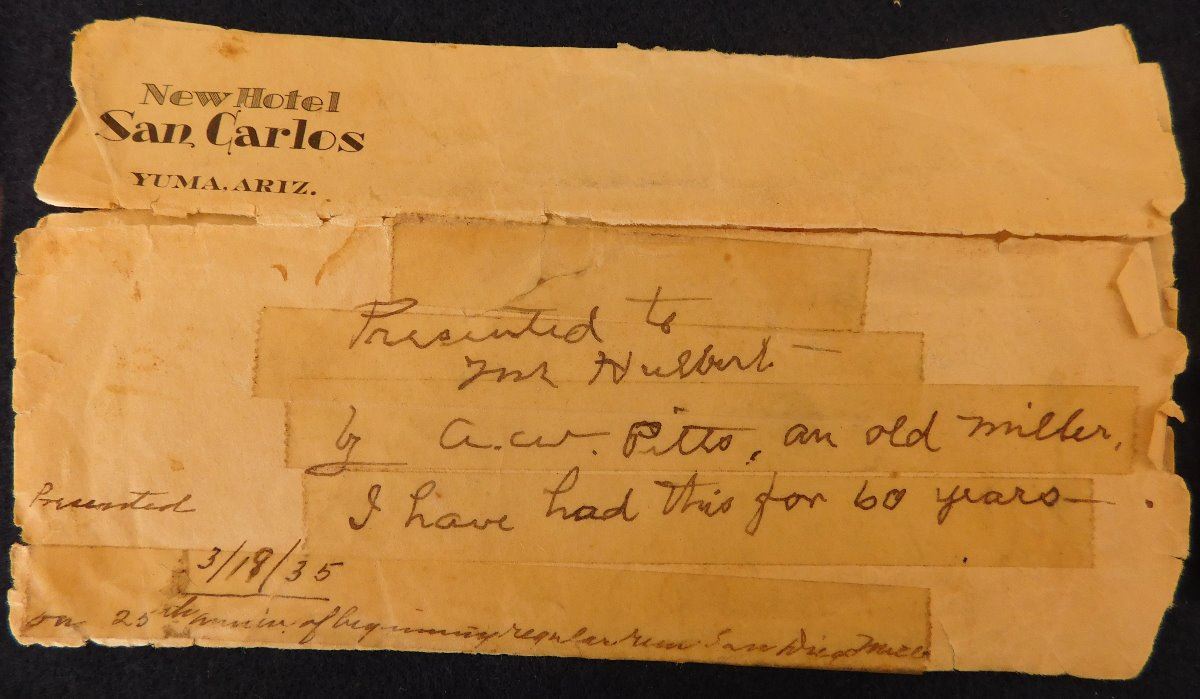 New Hotel
San Carlos
YUMA, ARIZ.
Presented to
Mr Hulbert —
by A.W. Pitts, an old miller,
I have had this for 60 years—.
Presented
3/18/35
on 25th anniv. of beginning regular run San Diego Mill